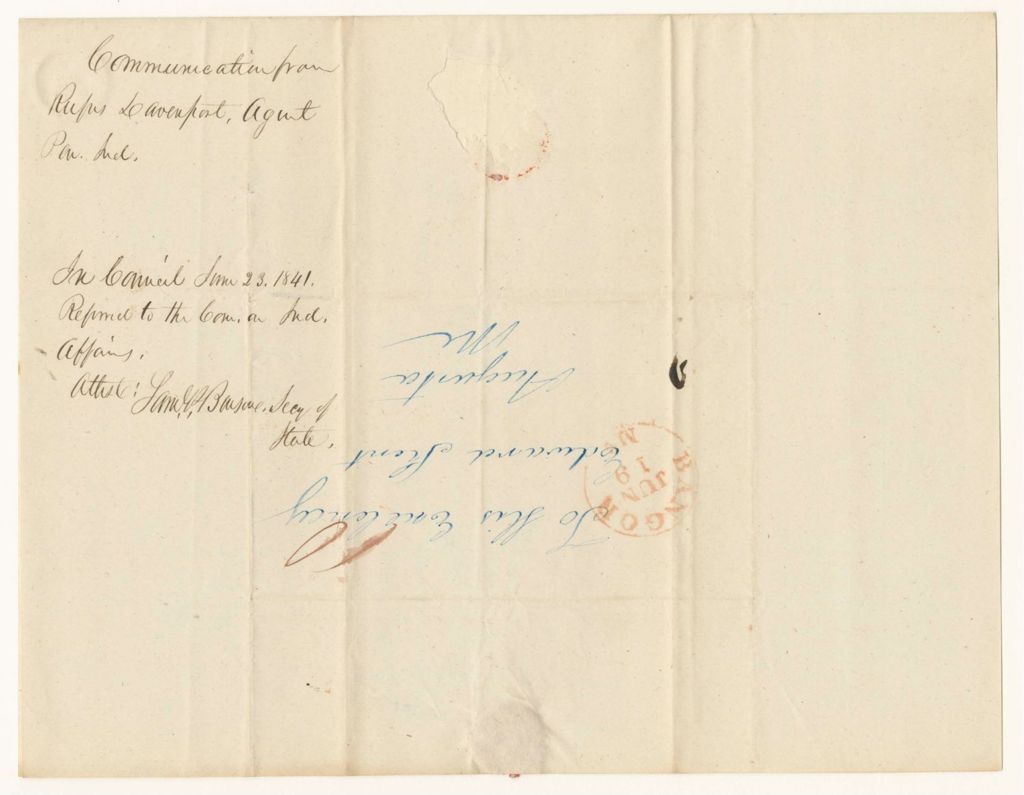 Communication from
Rufus Davenport, Agent
Pen. Ind.
In Council June 23. 1841.
Referred to the Com. on Ind.
Affairs.
Attest: Saml. P. Benson. Secy of
State.
To His Excelency
Edward Kent
Augusta
Me
BANGOR
JUN
19